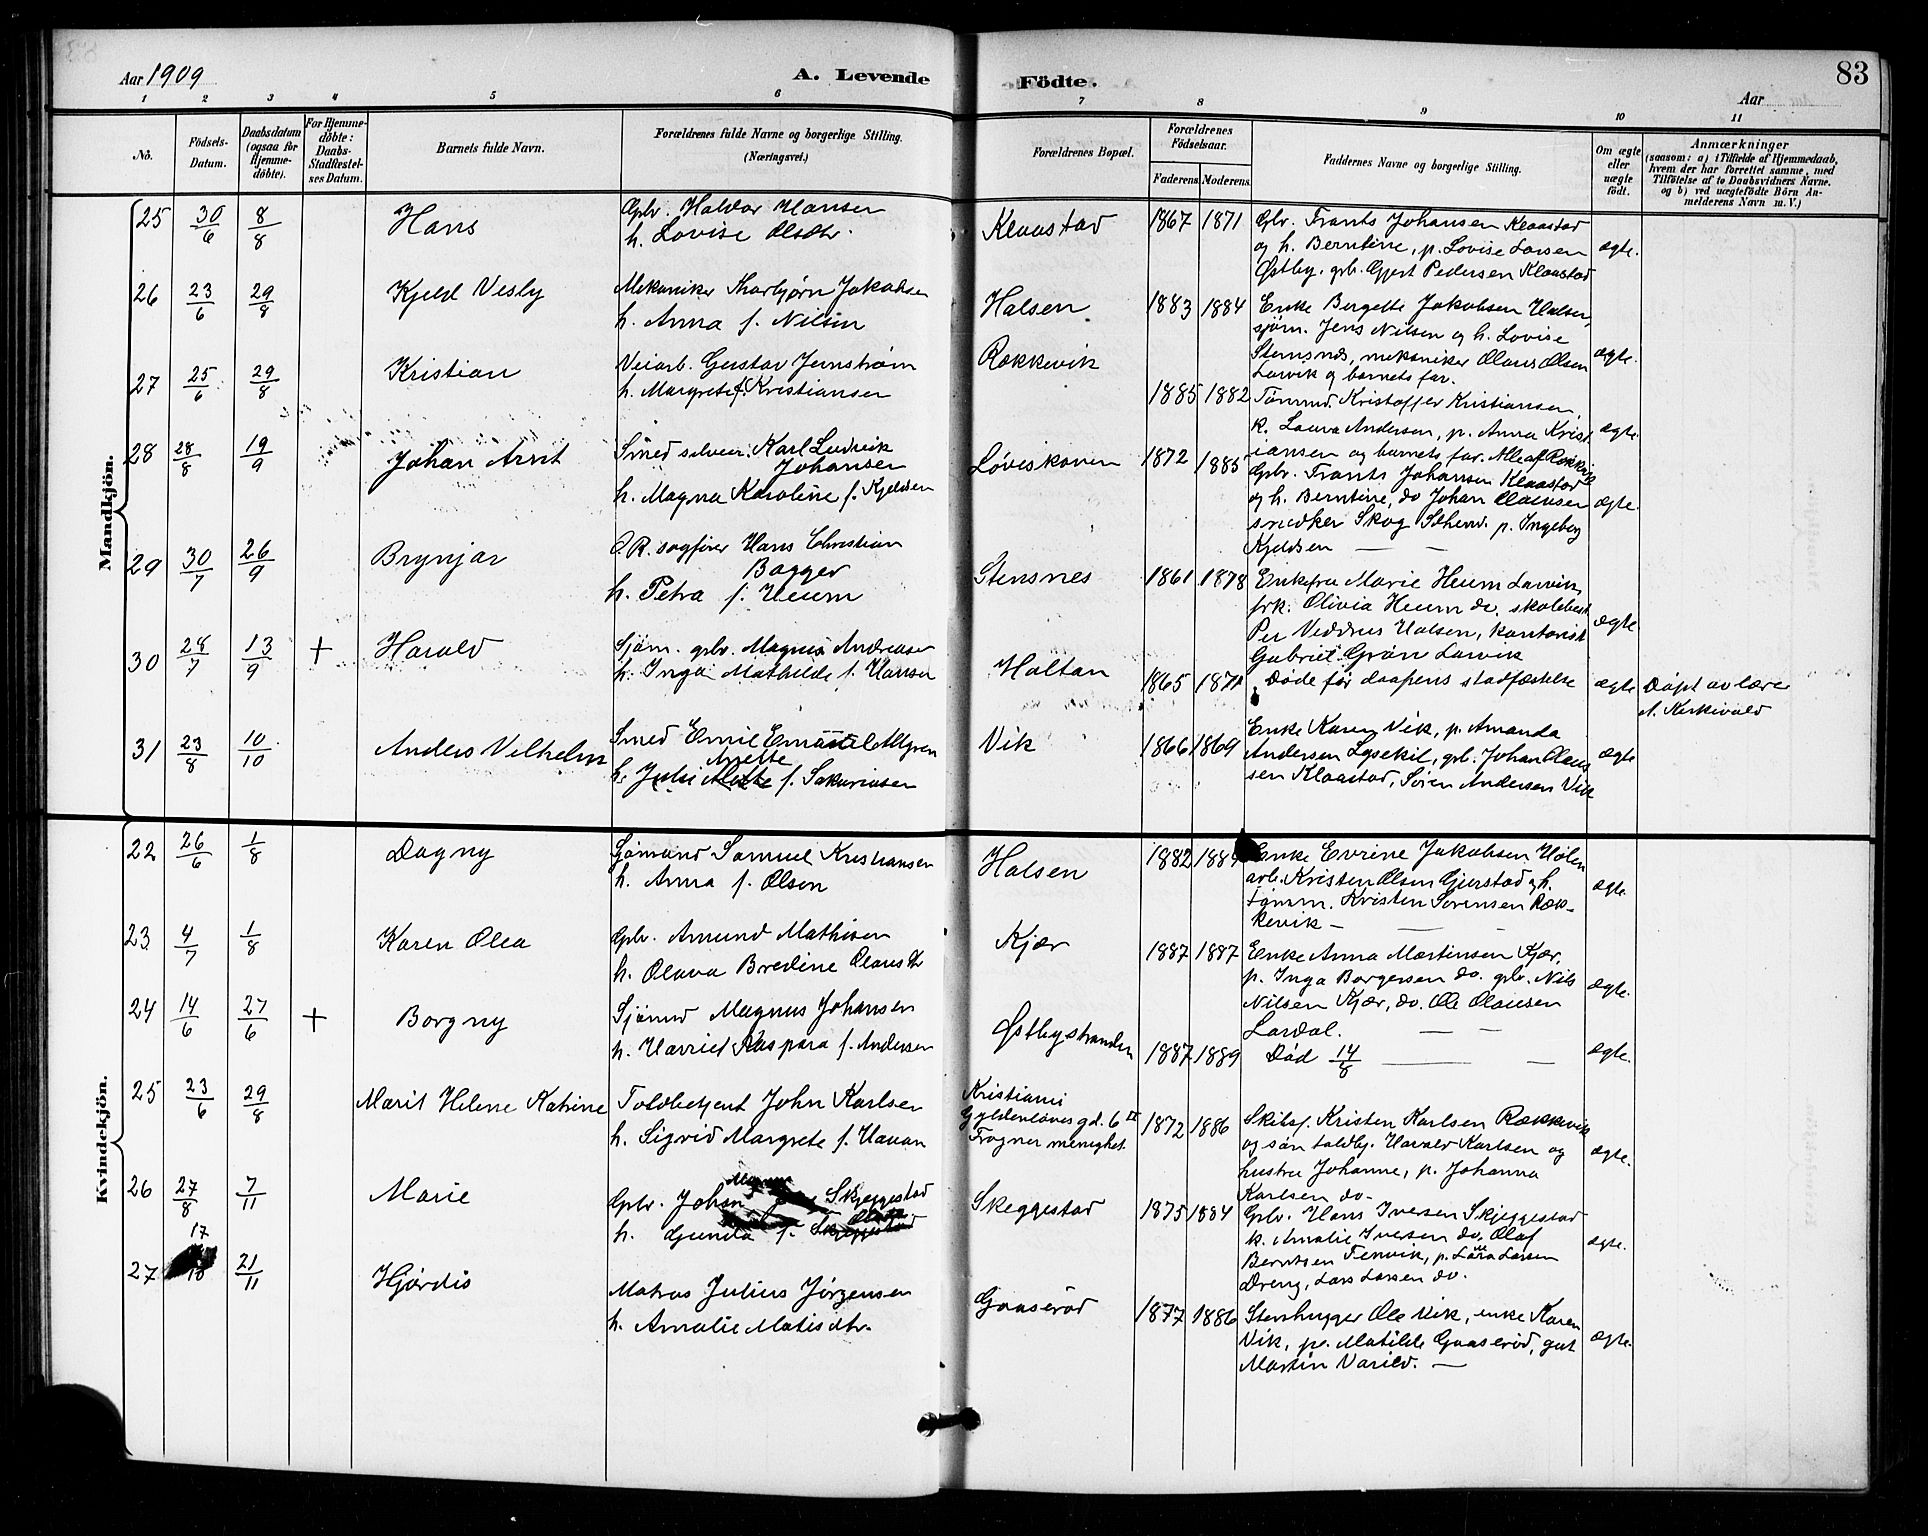 Aar 1909
A. Levende
Födte.
83
Aar
1 2 3 4 5 6 7 8 9 10 11
No.
Födsels-
Datum.
Daabsdatum
(ogsaa for
Hjemme-
döbte).
For Hjemme-
döbte:
Daabs-
Stadfæstel-
ses Datum.
Barnets fulde Navn.
Forældrenes fulde Navne og borgerlige Stilling.
(Næringsvei.)
Forældrenes Bopæl.
Forældrenes
Födselsaar.
Faderens. Moderens.
Faddernes Navne og borgerlige Stilling.
Om ægte
eller
uægte
födt.
Anmærkninger
(saasom: a) i Tilfælde af Hjemmedaab,
hvem der har forrettet samme, med
Tilföielse af to Daabsvidners Navne.
og b) ved uægtefödte Börn An-
melderens Navn m. V.)
Mandkjön.
25 30/6 8/8 Hans
Gbr. Haldor Hansen
h. Lovise Olsdtr.
Klaastad 1867 1871
Gbr. Frants Johansen Klaastad
og h. Berntine, p. Lovise Larsen
Østby. gbr. Gjert Pedersen Klaastad
ægte.
26 23/6 29/8 Kjeld Vesly
Mekaniker Thorbjørn Jakobsen
h. Anna f. Nilsen
Halsen 1883 1884
Enke Bergette Jakobsen Halsen,
sjøm. Jens Nilsen og h. Lovise
Stensnes, mekaniker Olaus Olsen
Larvik og barnets far.
ægte.
27 25/6 29/8 Kristian
Veiarb. Gustav Jernstrøm
h. Margrete f. Kristiansen
Rækkevik 1885 1882
Tømmd. Kristoffer Kristiansen,
k. Laura Andersen, p. Anna Krist
iansen og barnets far. Alle af Rækkevik
ægte.
28 28/8 19/9 Johan Arnt
Smed selveier Karl Ludvik
Johansen
h. Magna Karoline f. Kjeldsen
Løveskogen 1872 1885
Gbr. Frants Johansen Klaastad
og h. Berntine, do Johan Clausen
snedker Skog Sthend. p. Ingeborg
Kjeldsen — —
ægte.
29 30/7 26/9 Brynjar
O.R. sagfører Hans Christian
Bagger
h. Petra f. Heum
Stensnes 1861 1878
Enkefru Marie Heum Larvik,
frk. Olivia Heum do, skolebest.
Per Veddrus Halsen, kontorist
Gabriel Grøn Larvik
ægte
30 28/7 13/9 + Harald
Sjøm. gbr. Magnus Andreasen
h. Inga Mathilde f. Hansen
Holtan 1865 1871
Døde før daapens stadfæstelse
ægte Døpt av lærer
A. Kirkevold
31 23/8 10/10 Anders Vilhelm
Smed Emil Emanuel Ahlgren
Anette
h. Julie f. Sakariasen
Vik 1866 1869
Enke Karen Vik, p. Amanda
Andersen Lysekil, gbr. Johan Claus
sen Klaastad, Søren Andersen Vik
ægte
Kvindekjön.
22 26/6 1/8 Dagny
Sjømand Samuel Kristiansen
h. Anna f. Olsen
Halsen 1882 1884
Enke Evrine Jakobsen Hølen
arb. Kristen Olsen Gjerstad og h.
tømm. Kristen Sørensen Ræk-
kevik — — —
ægte.
23 4/7 1/8 Karen Olea
Gbr. Amund Mathisen
h. Olava Bredine Olausdtr
Kjær 1887 1887
Enke Anna Martinsen Kjær,
p. Inga Borgersen do. gbr. Nils
Nilsen Kjær, do. Ole Olausen
Lardal. — —
ægte.
24 14/6 27/6 + Borgny
Sjømnd Magnus Johansen
h. Harriet Kaspara f. Andersen
Østbystranden 1887 1889
Død 14/8 — —
ægte.
25 23/6 29/8 Marit Helene Katrine
Toldbetjent John Karlsen
h. Sigrid Margrete f. Havan
Kristiania
Gyldenløves gd. 6 II
Frogner menighet. 1872 1886
Skibsf. Kristen Karlsen Rækkevik
og søn toldbj. Harald Karlsen og
hustru Johanne, p. Johanna
Karlsen do-
ægte.
26 27/8 7/11 Marie
Magnus
Gbr. Johan Skjeggestad
Olsen
h. Gunda f. Skjeggestad
Skeggestad 1875 1884
Gbr. Hans Iversen Skjeggestad
k. Amalie Iversen do, Olaf
Berntsen Tenvik, p. Lara Larsen
Dreng, Lars Larsen do.
ægte.
27 17/10 21/11 Hjørdis
Matros Julius Jørgensen
h. Amalie Matisdtr.
Gaaserød 1877 1886
Stenhugger Ole Vik, enke Karen
Vik, pe. Matilde Gaaserød, gut
Martin Varild. —
ægte.